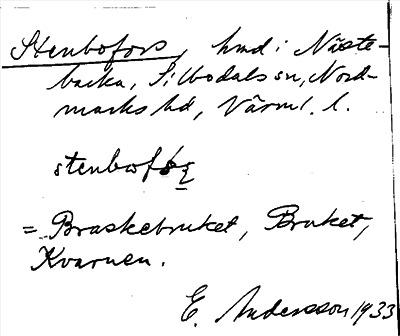 Stenbofors, hmd i Näste-
backa, Silbodals sn, Nord-
marks hd, Värml. l.
stenbofo̩s̱
= Braskebruket, Bruket,
Kvarnen.
E. Andersson 1933